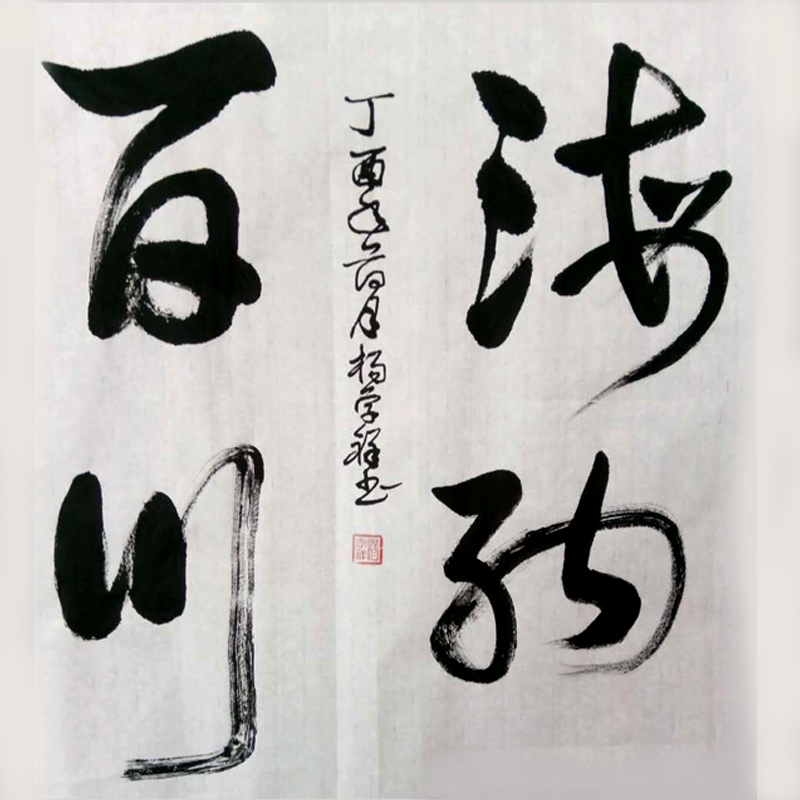 海纳
百川
丁酉年六月杨学程书